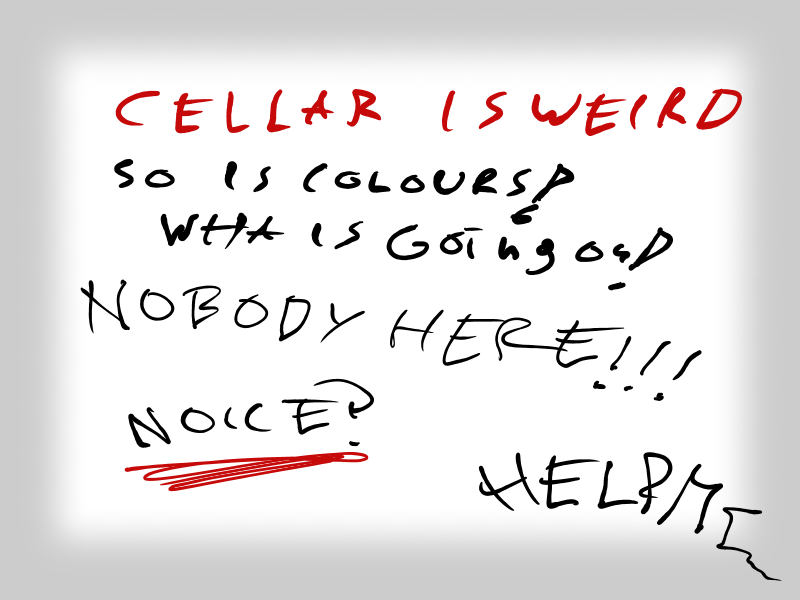 CELLAR IS WEIRD
SO IS COLOURS?
WHA IS GOING on?
NOBODY HERE!!!
NOICE?
HELP ME